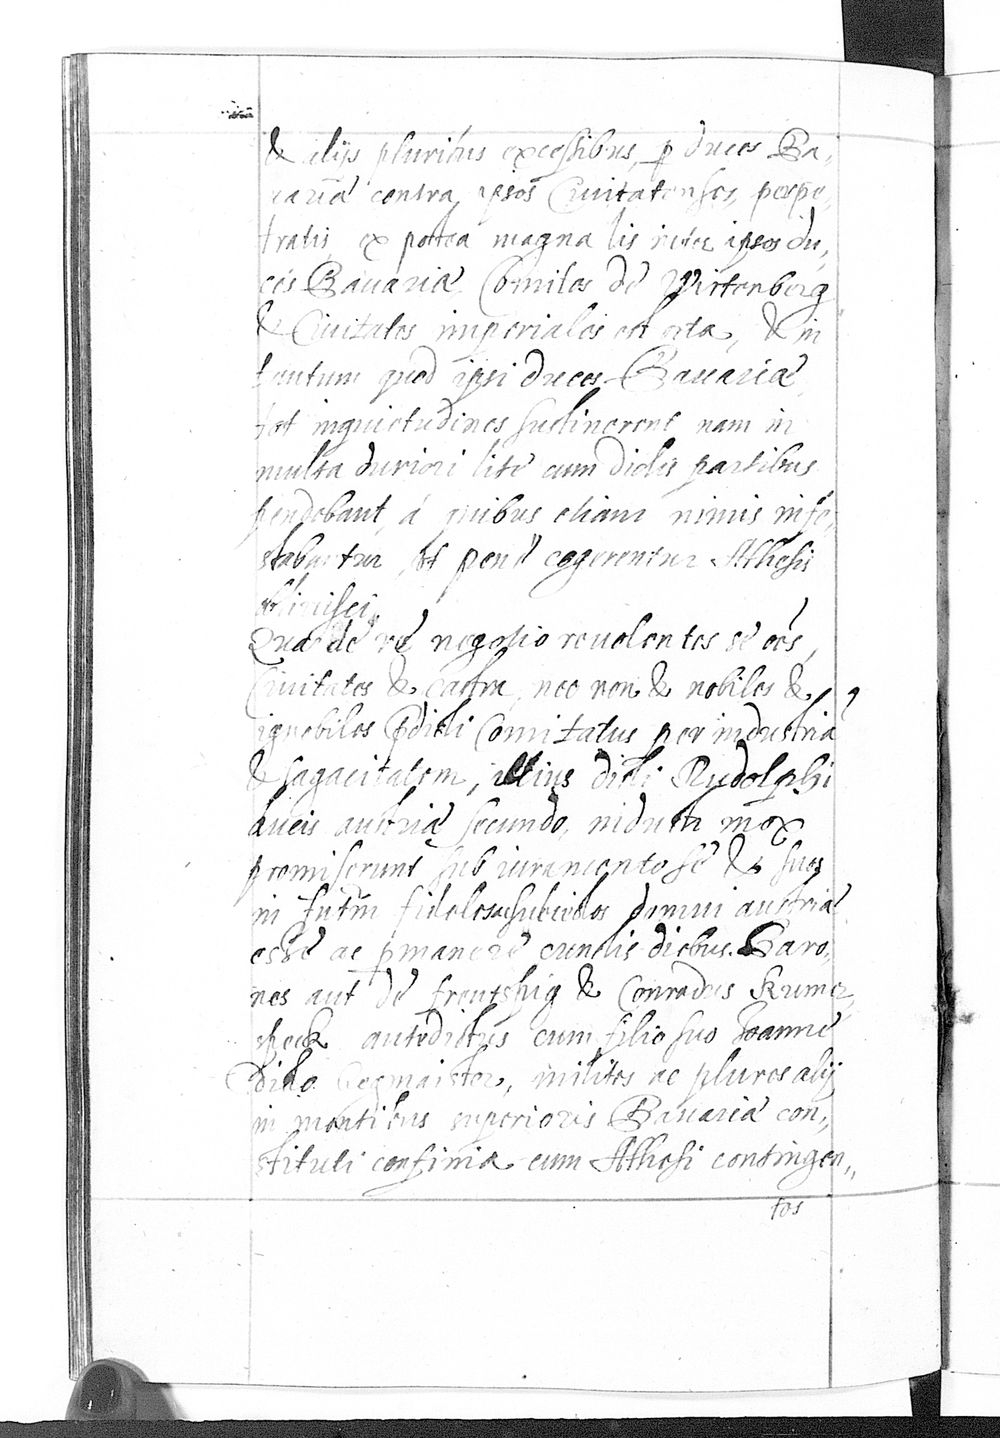 & alijs pluribus excessibus, p duces Ba,
uariæ contra ipsos Ciuitatenses, perpe,
tratis ex postea magna lis inter ipsos du,
ces Bauariæ, Comites de Wirtenberg
& Ciuitates imperiales est orta, & in
tantum quod ipsi duces Bauariæ
tot inquietudines sustinerent nam in
multa duriori lite cum dictis partibus
pendebant, à quibus etiam nimis infe,
stabantur, vt penè cogerentur Athesis
obliuisci.
Qua de re negotio reuolentes se oēs,
Ciuitates & castra, nec non & nobiles &
ignobiles pdicti Comitatus per industriā
& sagacitatem, illius dicti Rudolphi
ducis austriæ secundo, nidum mox
promiserunt sub iuramento se & suos
in futm̄ fideles subiectos domui austriæ
esse ac pmanere cunctis diebus. Baro,
nes aut de freutshig & Conradus Kumer,
speck antedictus cum filio suo Joanne
dicto Jegmaister, milites ac plures alij
in montibus superioris Bauariæ con,,
stituti confinia cum Athesi contingen,,
tes